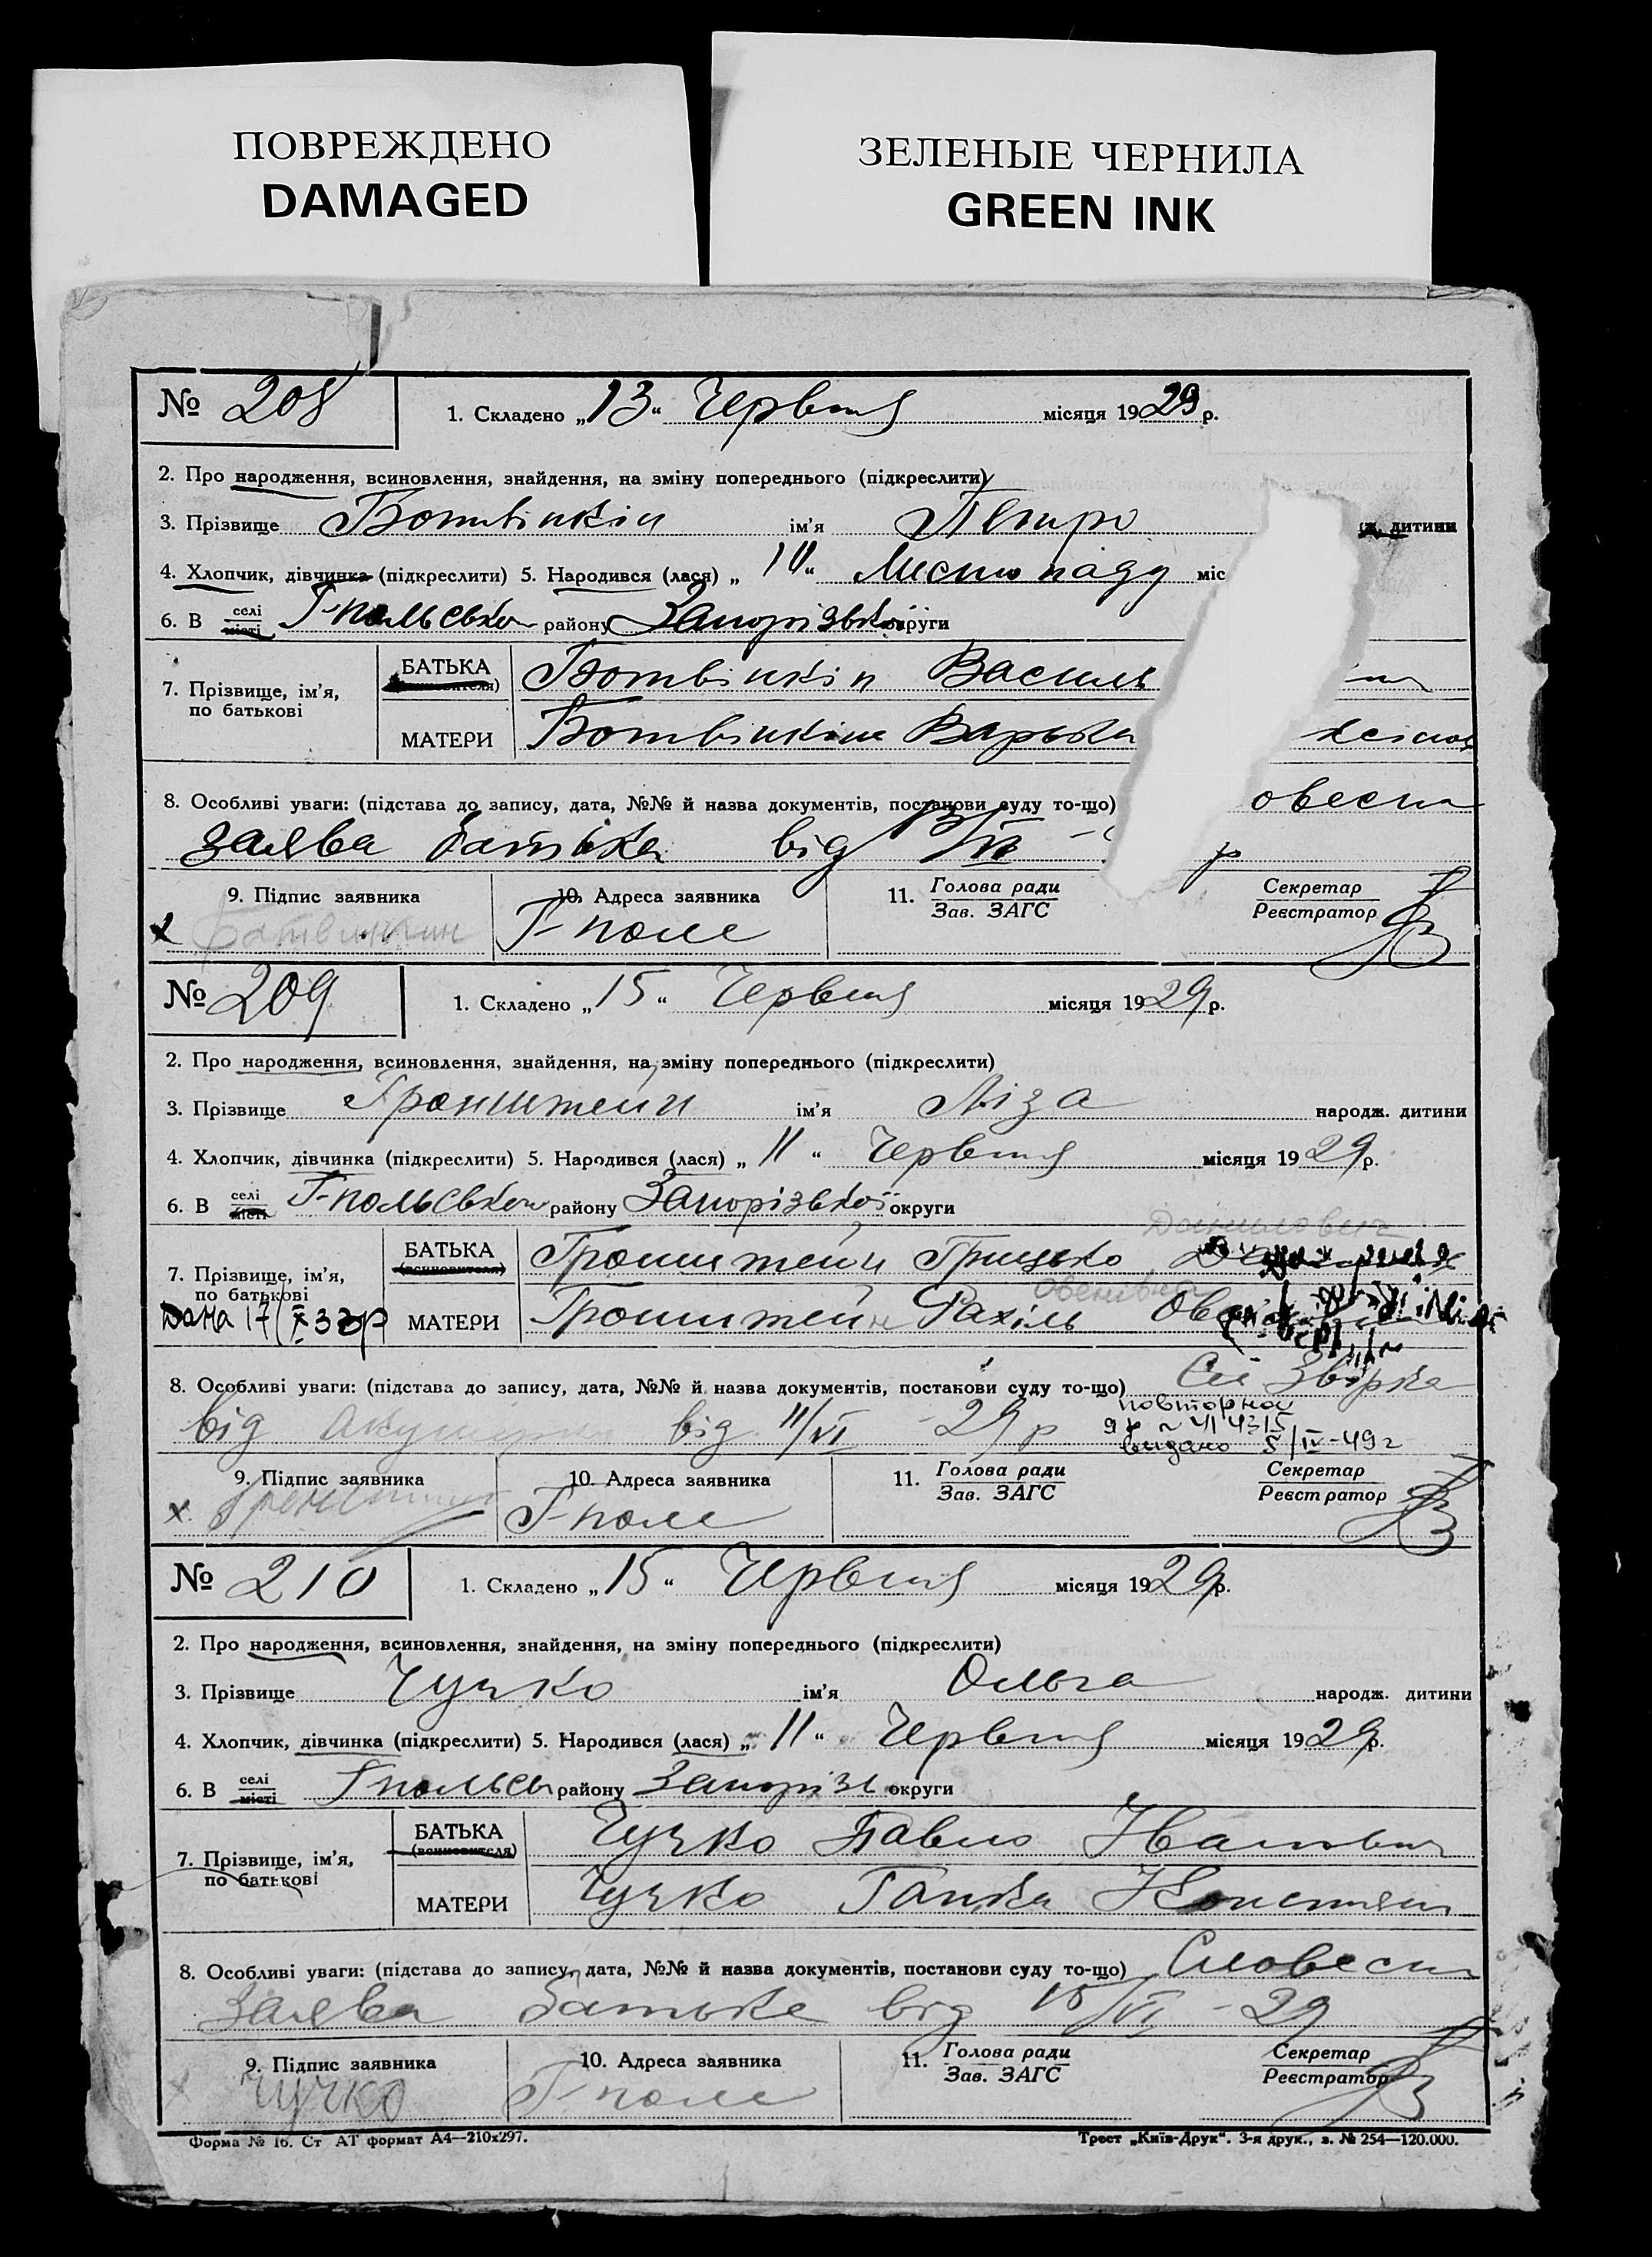 ПОВРЕЖДЕНО
DAMAGED
ЗЕЛЕНЫЕ ЧЕРНИЛА
GREEN INK
№ 208 1. Складено „13“ Червня місяця 1929 р.
2. Про народження, всиновлення, знайдення, на зміну попереднього (підкреслити)
3. Прізвище Ботвінкін ім'я Петро ж. дитини
4. Хлопчик, дівчинка (підкреслити) 5. Народився (лася) „ “ Листопаду міс
6. В селі місті Г-польськом району Запорізької округи
7. Прізвище, ім'я, по батькові
БАТЬКА Ботвінкін Василь
МАТЕРИ Ботвінкіна Варька
8. Особливі уваги: (підстава до запису, дата, №№ й назва документів, постанови суду то-що) овесна
заява батька від 13/VI р
9. Підпис заявника 10. Адреса заявника 11. Голова ради Зав. ЗАГС Секретар Реєстратор
х Батвинкин Г-поле
№ 209 1. Складено „15“ Червня місяця 1929 р.
2. Про народження, всиновлення, знайдення, на зміну попереднього (підкреслити)
3. Прізвище Гронштейн ім'я Ліза народж. дитини
4. Хлопчик, дівчинка (підкреслити) 5. Народився (лася) „11“ Червня місяця 1929 р.
6. В селі місті Г-польськом району Запорізької округи
Данилович
7. Прізвище, ім'я, по батькові
БАТЬКА (всиновителя) Гронштейн Грицько
Овсеивна
Дана 17/X 32р МАТЕРИ Гронштейн Рахіль
8. Особливі уваги: (підстава до запису, дата, №№ й назва документів, постанови суду то-що) Звірка
повторное
від Акушерки від 11/VI - 29 р
видано 5/IV-49 г
9. Підпис заявника 10. Адреса заявника 11. Голова ради Зав. ЗАГС Секретар Реєстратор
х Г-поле
№ 210 1. Складено „15“ Червня місяця 1929 р.
2. Про народження, всиновлення, знайдення, на зміну попереднього (підкреслити)
3. Прізвище Чучко ім'я Ольга народж. дитини
4. Хлопчик, дівчинка (підкреслити) 5. Народився (лася) „11“ Червня місяця 1929 р.
6. В селі місті Гпольсь району Запорізь округи
7. Прізвище, ім'я, по батькові
БАТЬКА (всиновителя) Чучко Павло Иванович
МАТЕРИ Чучко Ганна Констян
8. Особливі уваги: (підстава до запису, дата, №№ й назва документів, постанови суду то-що) Словесна
Заява батька від 15/VI - 29
9. Підпис заявника 10. Адреса заявника 11. Голова ради Зав. ЗАГС Секретар Реєстратор
х Чучко Г-поле
Форма № 16. Ст АТ формат А4—210х297. Трест „Київ-Друк“. 3-я друк., з. № 254—120.000.